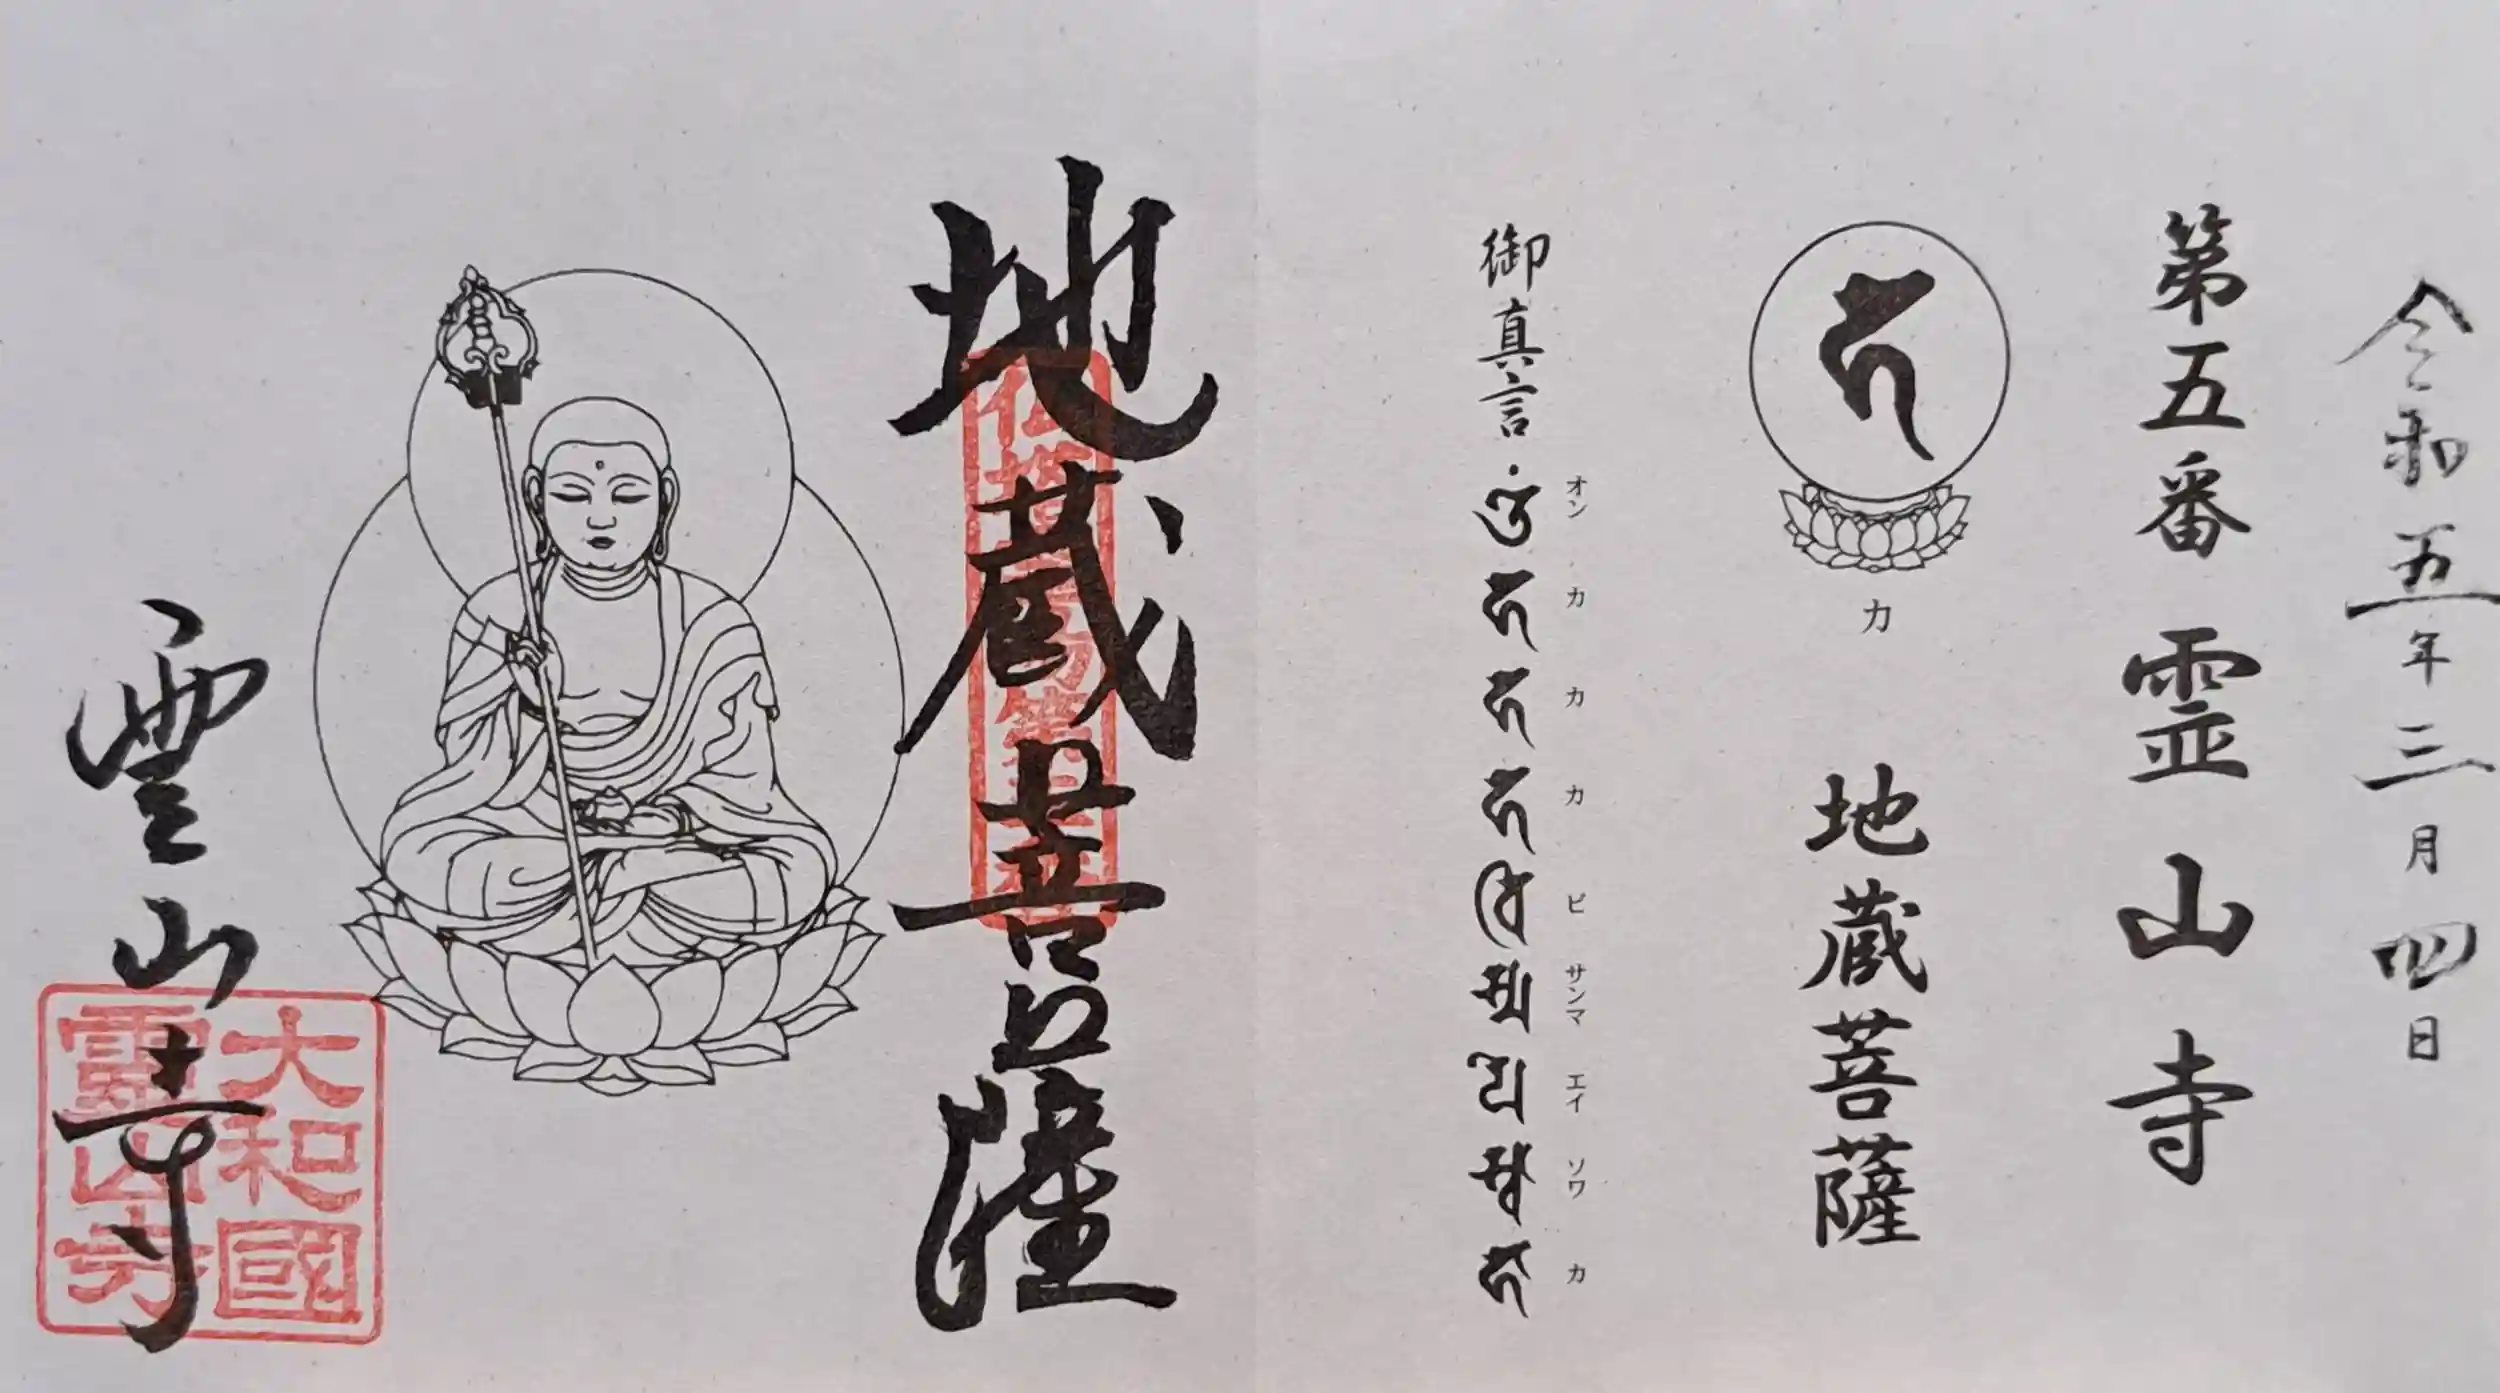 令和五年三月四日
第五番 霊山寺
カ 地蔵菩薩
オン カ カ カ ビ サンマ エイ ソワ カ
御真言
地蔵菩薩
靈山寺
大和國
靈山寺